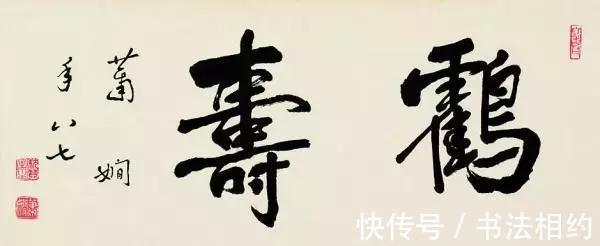 鸖壽
蕭嫻
年八七
快传号 / 书法相约